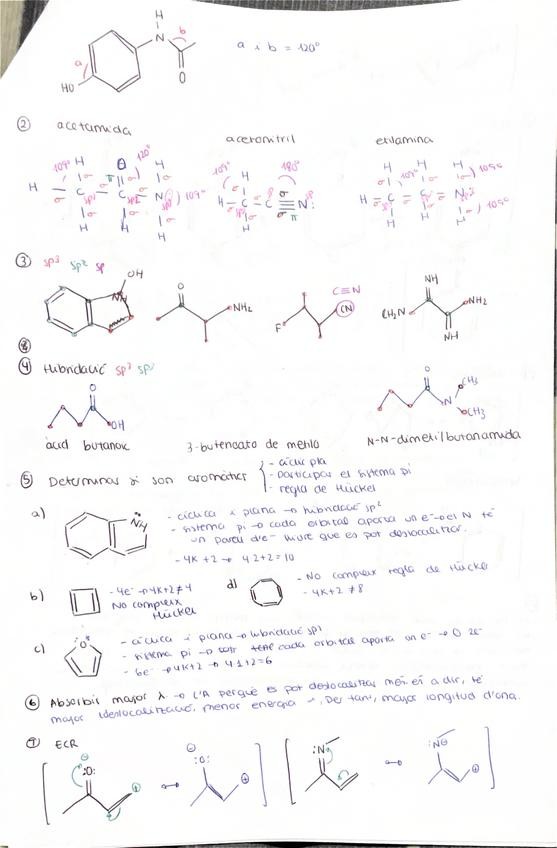 H
N
b
a
O
HO
a i b = 120°
② acetamida
acetonitril
etilamina
③ sp³ sp² sp
OH
NH
O
NH₂
C≡N
CN
F
NH
CH₃N
NH₂
NH
④ Hibridació sp³ sp²
O
OH
O
CH₃
N
CH₃
àcid butanoic
3-butenoato de metilo
N-N-dimetilbutanamida
⑤ Determinar si son aromàtics
- cíclic pla
- participar es sistema pi
- regla de Hückel
a)
NH
- cíclica i plana → hibridació sp²
- sistema pi → cada orbital aporta un e⁻ → el N té
un parell d'e⁻ lliure que es pot deslocalitzar.
- 4K+2 → 4·2+2=10
b)
- 4e⁻ → 4K+2≠4
No compleix
Hückel
d)
- No compleix regla de Hückel
- 4K+2 ≠ 8
c)
O
- cíclica i plana → hibridació sp²
- sistema pi → tot cada orbital aporta un e⁻ → O 2e⁻
- 6e⁻ → 4K+2 → 4·1+2=6
⑥ Absorbir major λ → L'A perquè es pot deslocalitzar més és a dir, té
major deslocalització, menor energia. Per tant, major longitud d'ona.
⑦ ECR
:O:
:O:
:N
:N⊖